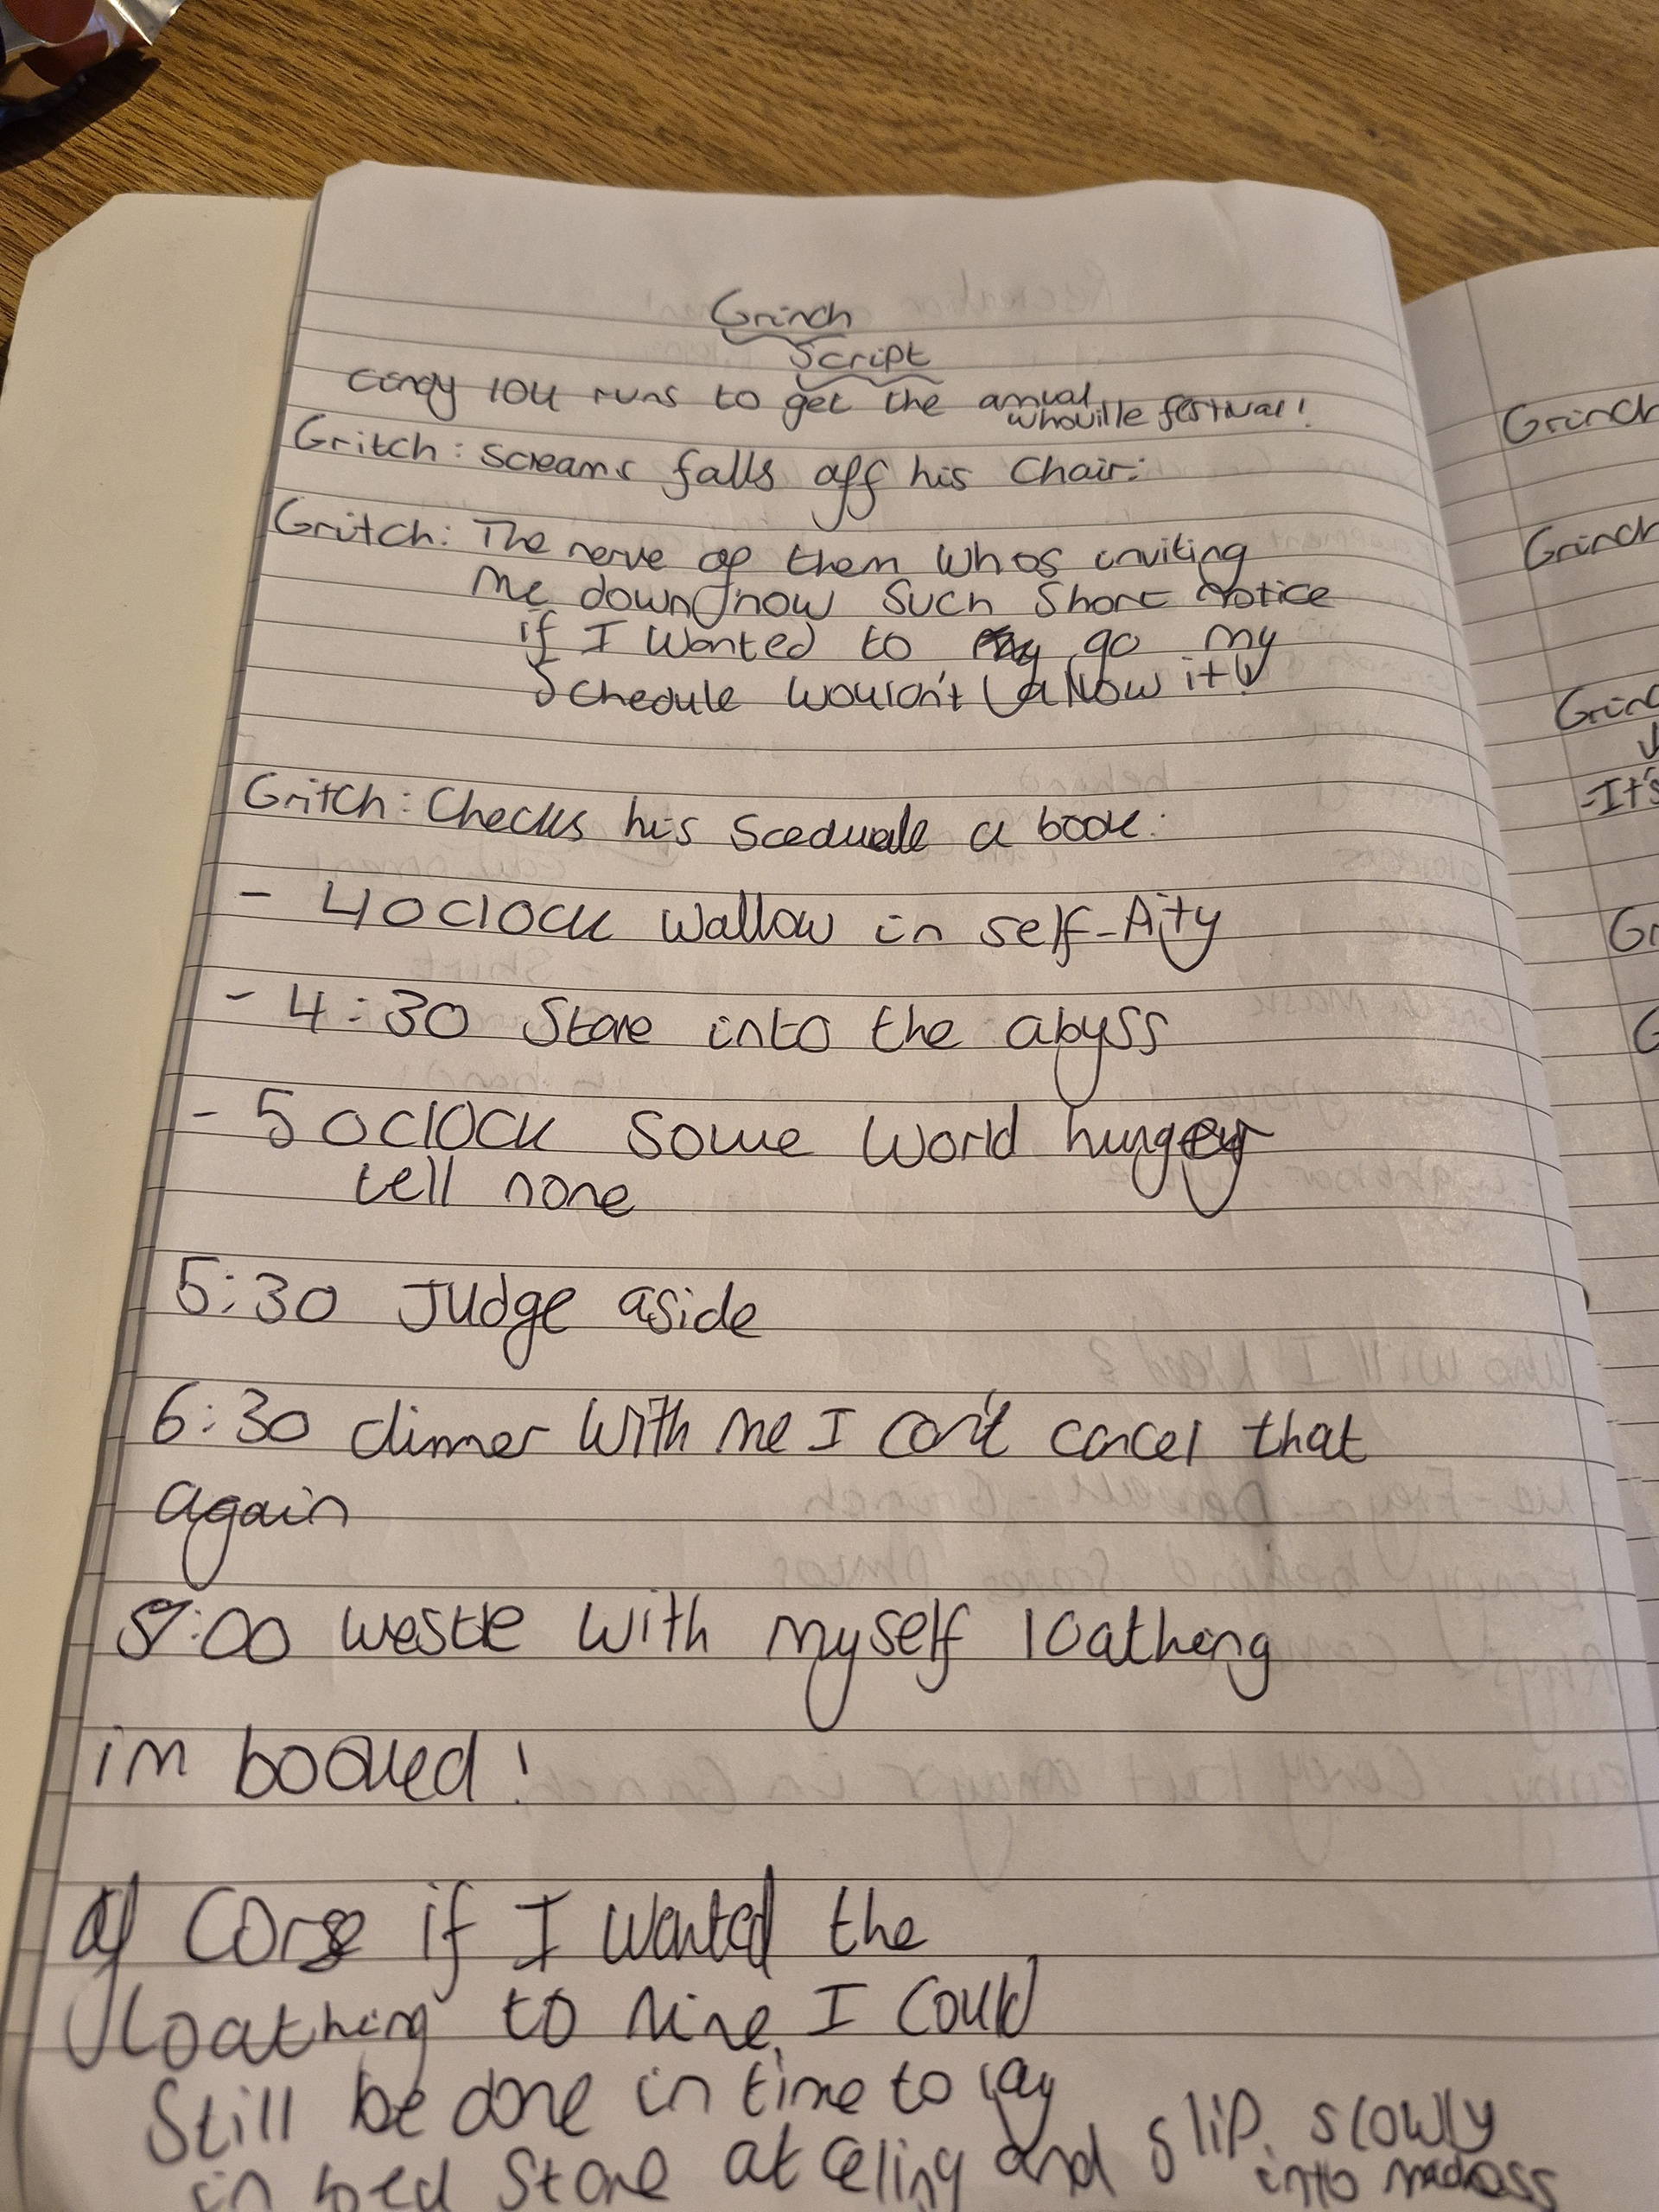 Grinch
Script
cindy lou runs to get the anual
whoville festival!
Gritch: screams falls off his Chair:
Gritch: The nerve of them whos inviting
me down now Such Short notice
if I wanted to go my
Schedule wouldn't allow it!
Gritch: Checks his a book:
- 4 oclock wallow in self-Pity
- 4:30 Stare into the abyss
- 5 oclock Solve World hunger
tell none
5:30 Judge aside
6:30 dinner with me I can't cancel that
again
:00 with myself loathing
im booked!
of Corse if I wanted the
loathing to nine, I Could
Still be done in time to lay
in bed Stare at Celing and slip slowly
into madness
Grinch
Grinch
Grinc
-It's
Gr
G